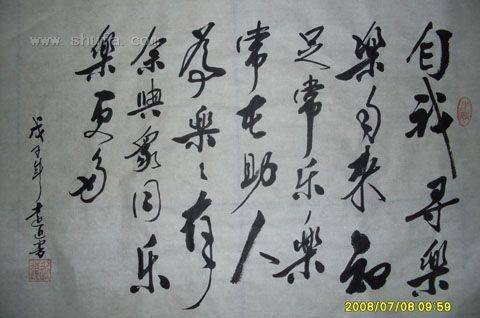 www.shufa.com
自我寻樂
樂自来知
足常乐樂
常在助人
為樂〻有
余與眾同乐
樂更多
戊子年
2008/07/08 09:59